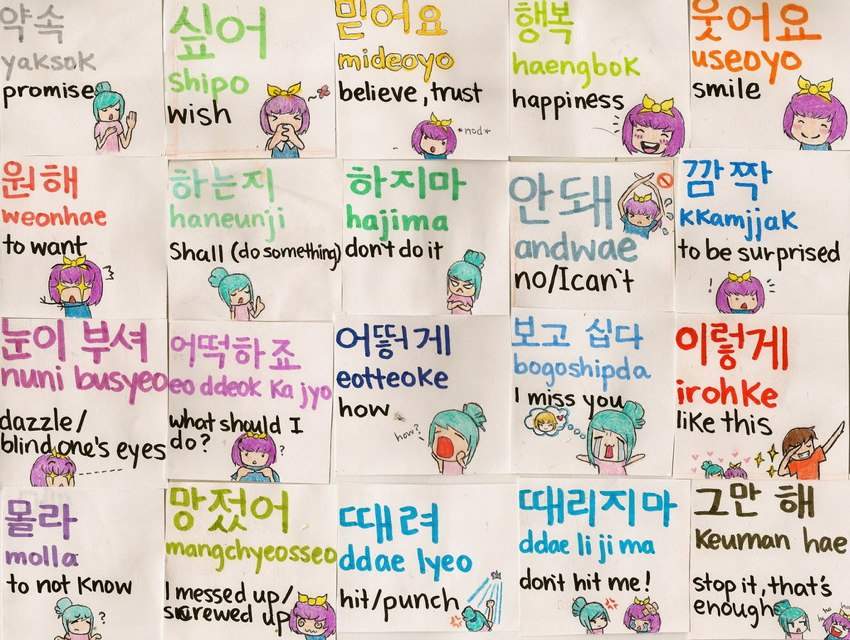 약속
yaksok
promise
싶어
shipo
wish
믿어요
mideoyo
believe, trust
*nod*
행복
haengbok
happiness
웃어요
useoyo
smile
원해
weonhae
to want
하는지
haneunji
Shall (do something)
하지마
hajima
don't do it
안돼
andwae
no/I can't
깜짝
kkamjjak
to be surprised
!
눈이 부셔
nuni busyeo
dazzle/
blind one's eyes
어떡하죠
eo ddeok ka jyo
what should I
do?
?
어떻게
eotteoke
how
how?
보고 십다
bogoshipda
I miss you
이렇게
irohke
like this
몰라
molla
to not know
?
망졌어
mangchyeosseo
I messed up/
screwed up
때려
ddae lyeo
hit/punch
때리지마
ddae li ji ma
don't hit me!
그만 해
keuman hae
stop it, that's
enough